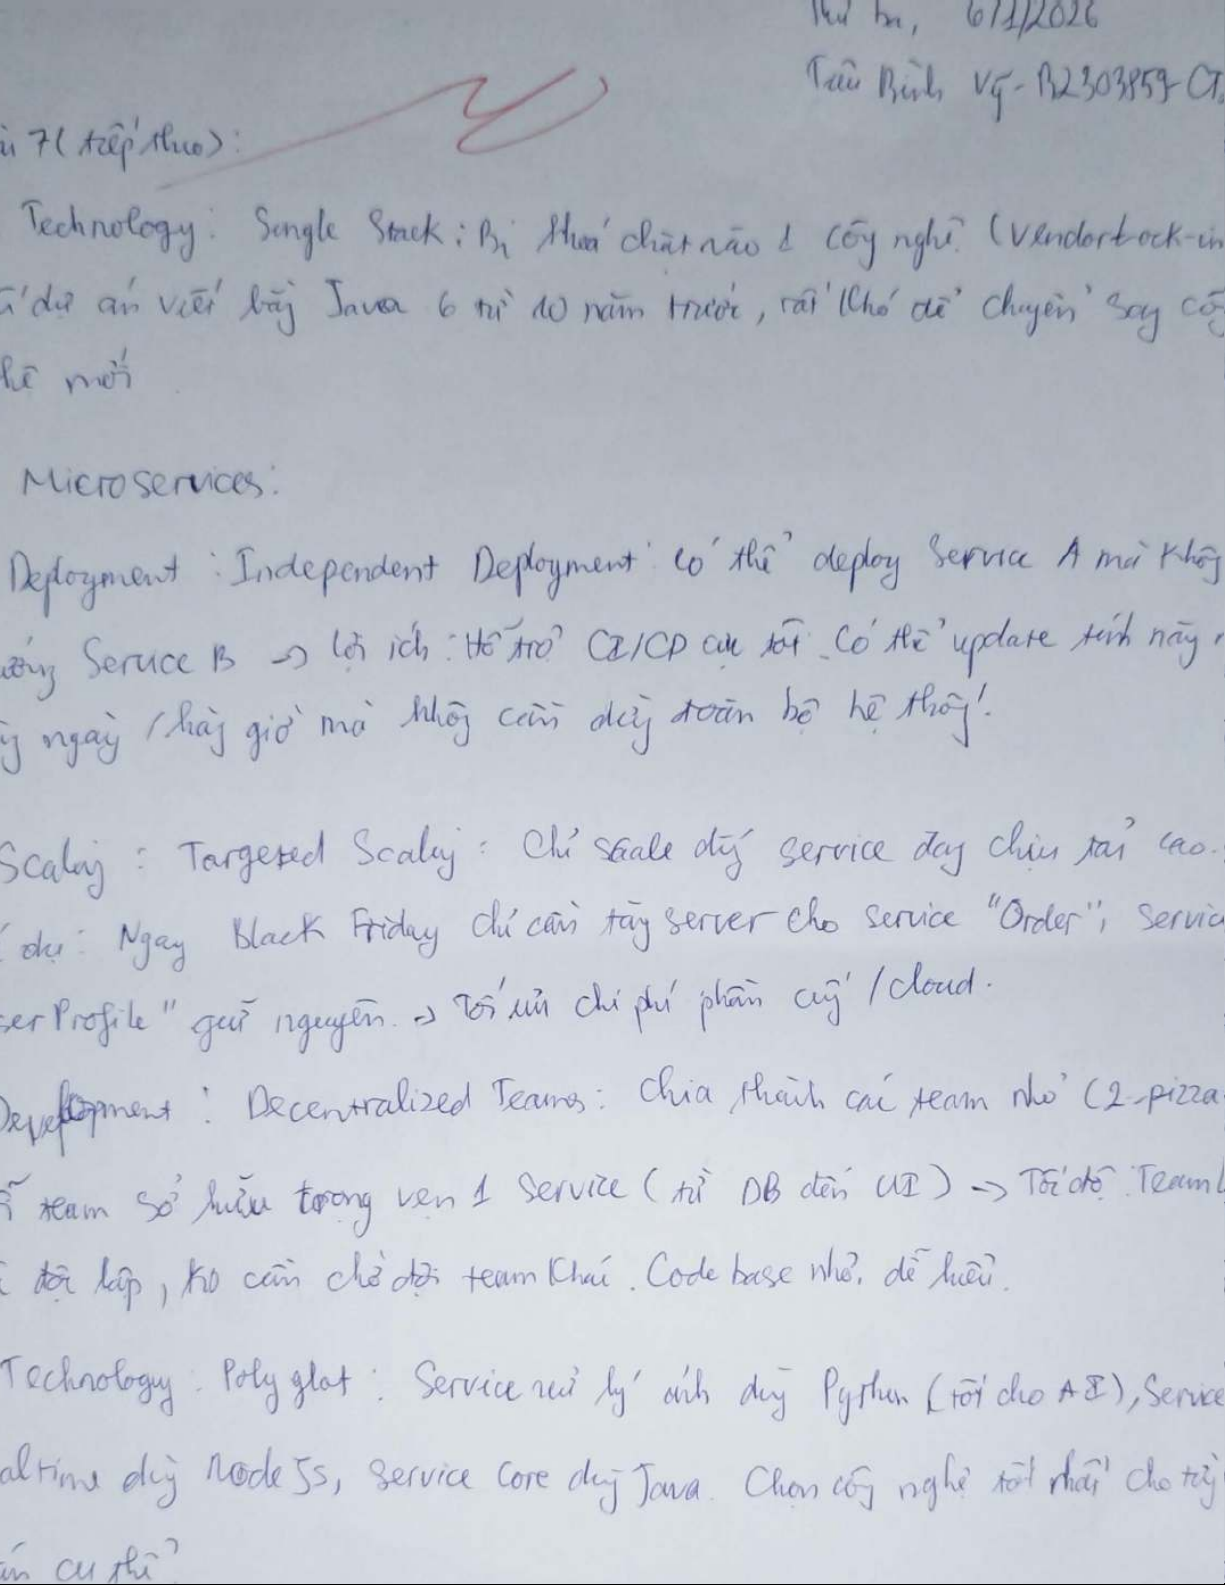 Thứ ba, 6/1/2026
Trần Bình Vỹ - B2303859 - CT
7 (tiếp theo):
Technology: Single Stack: Bị khoá chặt vào 1 công nghệ (Vendor Lock-in
dự án viết bằng Java 6 từ 10 năm trước, rất khó để chuyển sang
mới
Microservices:
Deployment: Independent Deployment: có thể deploy Service A mà không
Service B → lợi ích: Hỗ trợ CI/CD cực tốt. Có thể update tính năng
ngày / hàng giờ mà không cần dừng toàn bộ hệ thống!
Scaling: Targeted Scaling: Chỉ scale đúng service đang chịu tải cao.
dụ: Ngày Black Friday chỉ cần tăng server cho service "Order", Servic
ser Profile" giữ nguyên. → Tối ưu chi phí phần cứng / cloud.
Development: Decentralized Teams: Chia thành các team nhỏ (2-pizza
team sở hữu trọng vẹn 1 Service (từ DB đến UI) → Tốc độ: Team
độc lập, ko cần chờ đợi team khác. Code base nhỏ, dễ hiểu.
Technology: Polyglot: Service xử lý ảnh dùng Python (tốt cho AI), Service
altime dùng Node JS, Service Core dùng Java. Chọn công nghệ tốt nhất cho từng
cụ thể